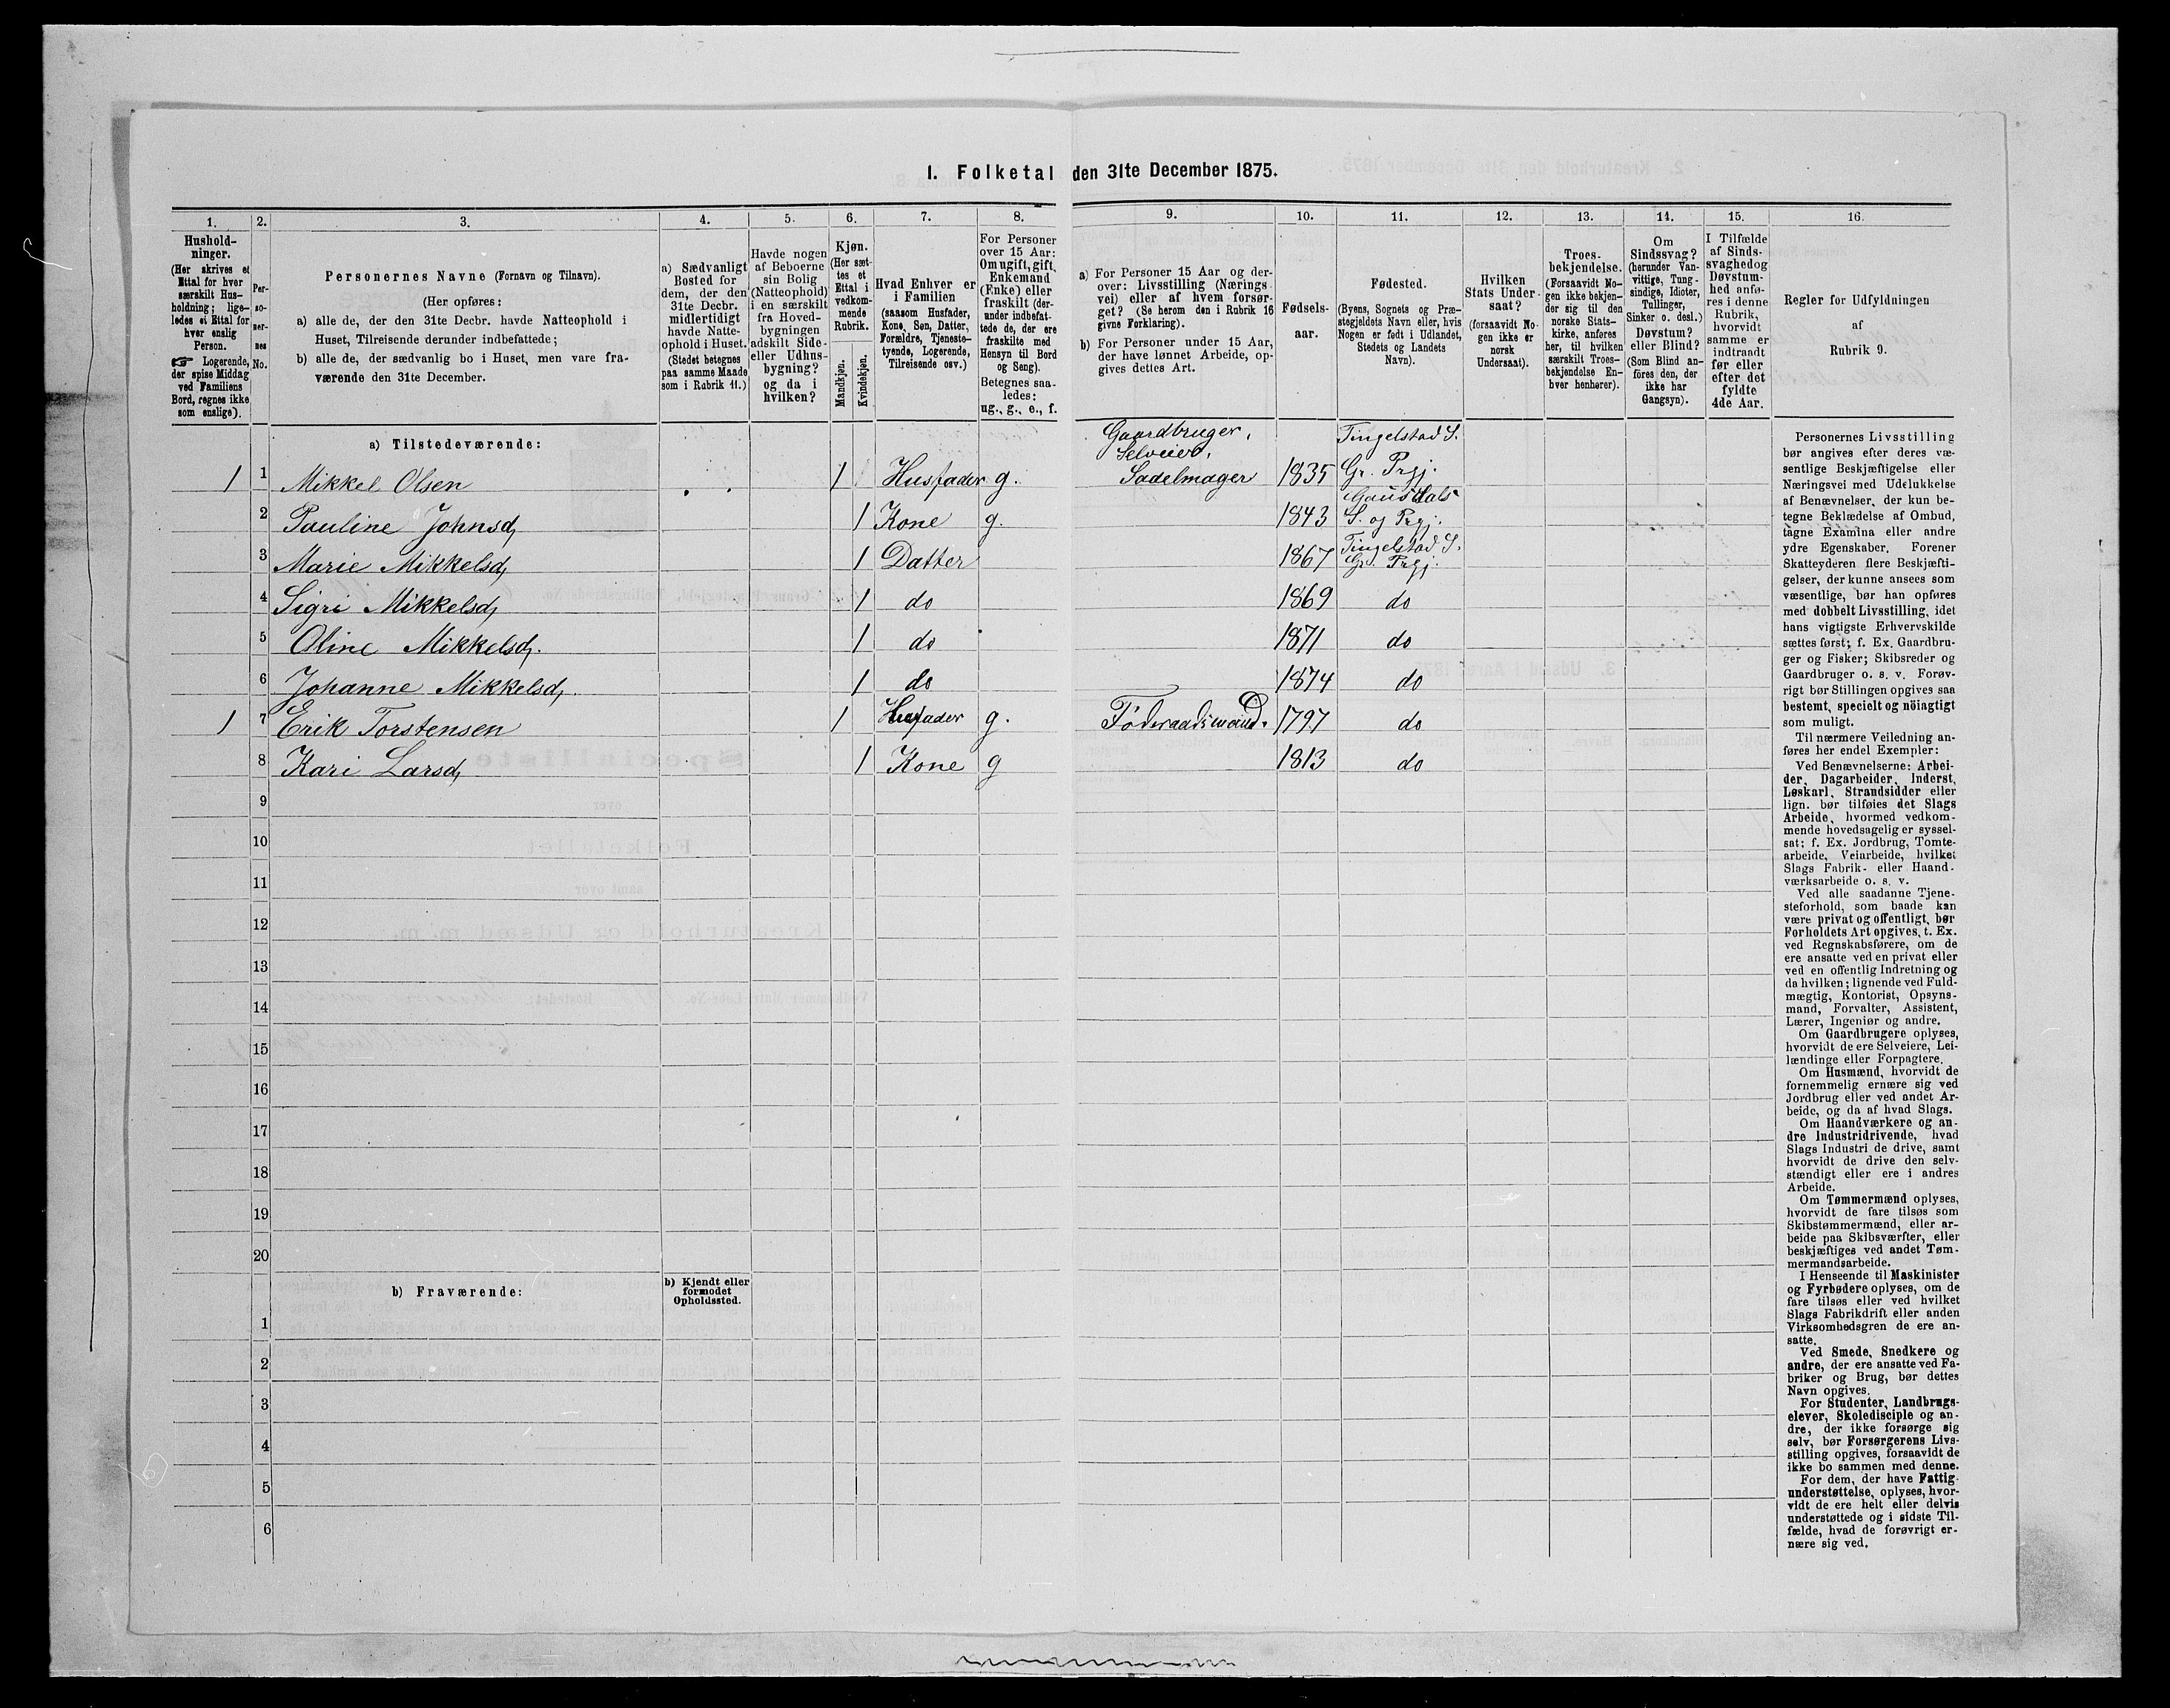 1. Folketal den 31te December 1875.
1. 2. 3. 4. 5. 6. 7. 8. 9. 10. 11. 12. 13. 14. 15. 16.
Hushold-
ninger.
(Her skrives et
Ettal for hver
særskilt Hus-
holdning; lige-
ledes et Ettal for
hver enslig
Person.
☞ Logerende,
der spise Middag
ved Familiens
Bord, regnes ikke
som enslige).
Per-
so-
ner-
nes
No.
Personernes Navne (Fornavn og Tilnavn).
(Her opføres:
a) alle de, der den 31te Decbr. havde Natteophold i
Huset, Tilreisende derunder indbefattede;
b) alle de, der sædvanlig bo i Huset, men vare fra-
værende den 31te December.
a) Sædvanligt
Bosted for
dem, der den
31te Decbr.
midlertidigt
havde Natte-
ophold i Huset.
(Stedet betegnes
paa samme Maade
som i Rubrik 11.)
Havde nogen
af Beboerne
sin Bolig
(Natteophold)
i en særskilt
fra Hoved-
bygningen
adskilt Side-
eller Udhus-
bygning?
og da i
hvilken?
Kjøn.
(Her sæt-
tes et
Ettal i
vedkom-
mende
Rubrik.
Mandkjøn.
Kvindekjøn.
Hvad Enhver er
i Familien
(saasom Husfader,
Kone, Søn, Datter,
Forældre, Tjeneste-
tyende, Logerende,
Tilreisende osv.)
For Personer
over 15 Aar:
Om ugift, gift,
Enkemand
(Enke) eller
fraskilt (der-
under indbefat-
tede de, der ere
fraskilte med
Hensyn til Bord
og Seng).
Betegnes saa-
ledes:
ug., g., e., f.
a) For Personer 15 Aar og der-
over: Livsstilling (Nærings-
vei) eller af hvem forsør-
get? (Se herom den i Rubrik 16
givne Forklaring).
b) For Personer under 15 Aar,
der have lønnet Arbeide, op-
gives dettes Art.
Fødsels-
aar.
Fødested.
(Byens, Sognets og Præ-
stegjeldets Navn eller, hvis
Nogen er født i Udlandet,
Stedets og Landets
Navn).
Hvilken
Stats Under-
saat?
(forsaavidt No-
gen ikke er
norsk
Undersaat).
Troes-
bekjendelse.
(Forsaavidt No-
gen ikke bekjen-
der sig til den
norske Stats-
kirke, anføres
her, til hvilken
særskilt Troes-
bekjendelse En-
hver henhører).
Om
Sindssvag?
(herunder Van-
vittige, Tung-
sindige, Idioter,
Tullinger,
Sinker o. desl.)
Døvstum?
eller Blind?
(Som Blind an-
føres den, der
ikke har
Gangsyn).
I Tilfælde
af Sinds-
svaghed og
Døvstum-
hed anfø-
res i denne
Rubrik,
hvorvidt
samme er
indtraadt
før eller
efter det
fyldte
4de Aar.
Regler for Udfyldningen
af
Rubrik 9.
a) Tilstedeværende:
Gaardbruger, Tingelstad S.
Selveier,
1 1 Mikkel Olsen 1 Husfader g. Sadelmager 1835 Gr. Prgj.
Gausdals
2 Pauline Johnsd, 1 Kone g. 1843 S. og Prgj.
Tingelstad S.
3 Marie Mikkelsd, 1 Datter 1867 Gr. Prgj.
4 Sigri Mikkelsd, 1 do 1869 do
5 Oline Mikkelsd, 1 do 1871 do
6 Johanne Mikkelsd, 1 do 1874 do
1 7 Erik Torstensen 1 Husfader g. Føderaadsmand. 1797 do
8 Kari Larsd, 1 Kone g 1813 do
9
10
11
12
13
14
15
16
17
18
19
20
b) Fraværende:
b) Kjendt eller
formodet
Opholdssted.
1
2
3
4
5
6
Personernes Livsstilling
bør angives efter deres væ-
sentlige Beskjæftigelse eller
Næringsvei med Udelukkelse
af Benævnelser, der kun be-
tegne Beklædelse af Ombud,
tagne Examina eller andre
ydre Egenskaber. Forener
Skatteyderen flere Beskjæfti-
gelser, der kunne ansees som
væsentlige, bør han opføres
med dobbelt Livsstilling, idet
hans vigtigste Erhvervskilde
sættes først; f. Ex. Gaardbru-
ger og Fisker; Skibsreder og
Gaardbruger o. s. v. Forøv-
rigt bør Stillingen opgives saa
bestemt, specielt og nöiagtigt
som muligt.
Til nærmere Veiledning an-
føres her endel Exempler:
Ved Benævnelserne: Arbei-
der, Dagarbeider, Inderst,
Løskarl, Strandsidder eller
lign. bør tilføies det Slags
Arbeide, hvormed vedkom-
mende hovedsagelig er syssel-
sat; f. Ex. Jordbrug, Tomte-
arbeide, Veiarbeide, hvilket
Slags Fabrik- eller Haand-
værksarbeide o. s. v.
Ved alle saadanne Tjene-
steforhold, som baade kan
være privat og offentligt, bør
Forholdets Art opgives, t. Ex.
ved Regnskabsførere, om de
ere ansatte ved en privat eller
ved en offentlig Indretning og
da hvilken; lignende ved Fuld-
mægtig, Kontorist, Opsyns-
mand, Forvalter, Assistent,
Lærer, Ingeniør og andre.
Om Gaardbrugere oplyses,
hvorvidt de ere Selveiere, Lei-
lændinge eller Forpagtere.
Om Husmænd, hvorvidt de
fornemmelig ernære sig ved
Jordbrug eller ved andet Ar-
beide, og da af hvad Slags.
Om Haandværkere og an-
dre Industridrivende, hvad
Slags Industri de drive, samt
hvorvidt de drive den selv-
stændigt eller ere i andres
Arbeide.
Om Tømmermænd oplyses,
hvorvidt de fare tilsøs som
Skibstømmermænd, eller ar-
beide paa Skibsværfter, eller
beskjæftiges ved andet Tøm-
mermandsarbeide.
I Henseende til Maskinister
og Fyrbødere oplyses, om de
fare tilsøs eller ved hvilket
Slags Fabrikdrift eller anden
Virksomhedsgren de ere an-
satte.
Ved Smede, Snedkere og
andre, der ere ansatte ved Fa-
briker og Brug, bør dettes
Navn opgives.
For Studenter, Landbrugs-
elever, Skoledisciple og an-
dre, der ikke forsørge sig
selv, bør Forsørgerens Livs-
stilling opgives, forsaavidt de
ikke bo sammen med denne.
For dem, der have Fattig-
understøttelse, oplyses, hvor-
vidt de ere helt eller delvis
understøttede og i sidste Til-
fælde, hvad de forøvrigt er-
nære sig ved.